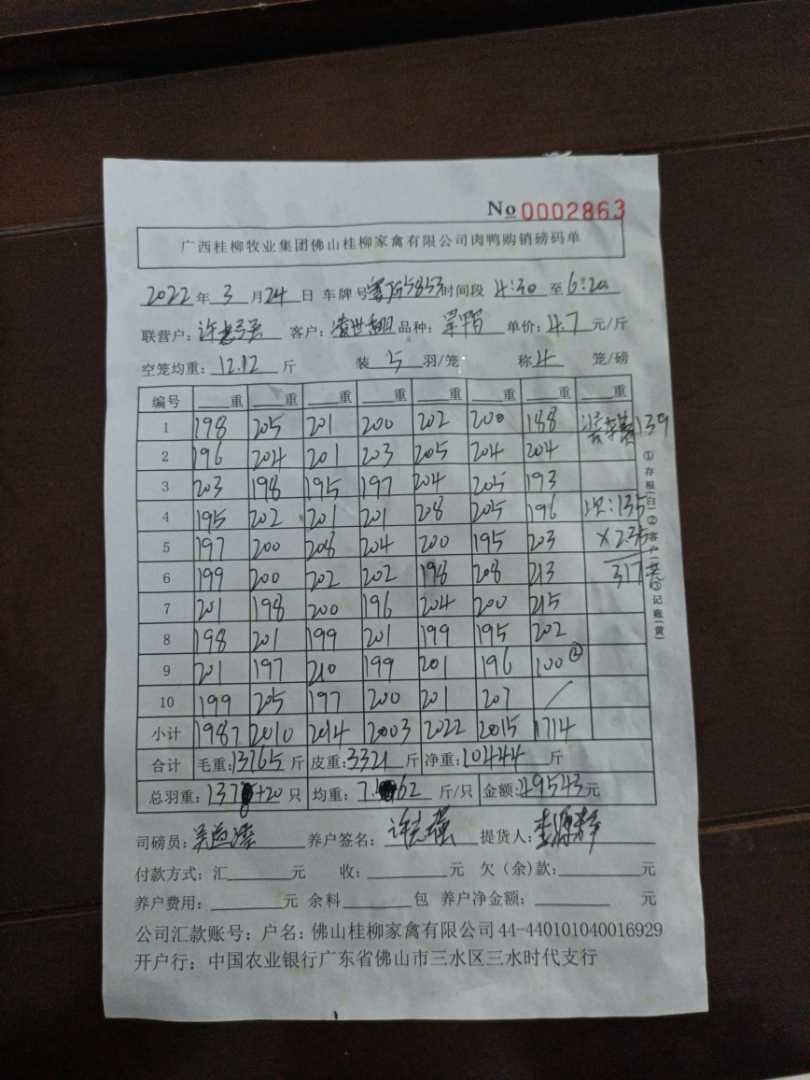 No 0002863
广西桂柳牧业集团佛山桂柳家禽有限公司肉鸭购销磅码单
2022年 3月24日 车牌号 5853时间段 4:30 至 6:20
联营户: 许 强 客户: 世 品种: 单价: 4.7 元/斤
空笼均重: 12.12 斤 装 5 羽/笼 称 4 笼/磅
编号 重 重 重 重 重 重 重 重
1 198 205 201 200 202 200 188 139
2 196 204 201 203 205 204 204
3 203 198 195 197 204 205 193
4 195 202 201 201 208 205 196 135
5 197 200 208 204 200 195 203 ×2.35
6 199 200 202 202 198 208 213 317
7 201 198 200 196 204 200 215
8 198 201 199 201 199 195 202
9 201 197 210 199 201 196 100②
10 199 205 197 200 201 207 /
小计 1987 2010 2014 2003 2022 2015 1714
合计 毛重:13765斤 皮重:3321斤 净重:10444斤
总羽重: 1378+20 只 均重: 7.62 斤/只 金额:49543元
司磅员: 养户签名: 许 强 提货人: 李
付款方式: 汇 元 收: 元 欠(余)款: 元
养户费用: 元 余料 包 养户净金额: 元
公司汇款账号: 户名: 佛山桂柳家禽有限公司 44-440101040016929
开户行: 中国农业银行广东省佛山市三水区三水时代支行
①存根(白)②客户(红)③记账(黄)